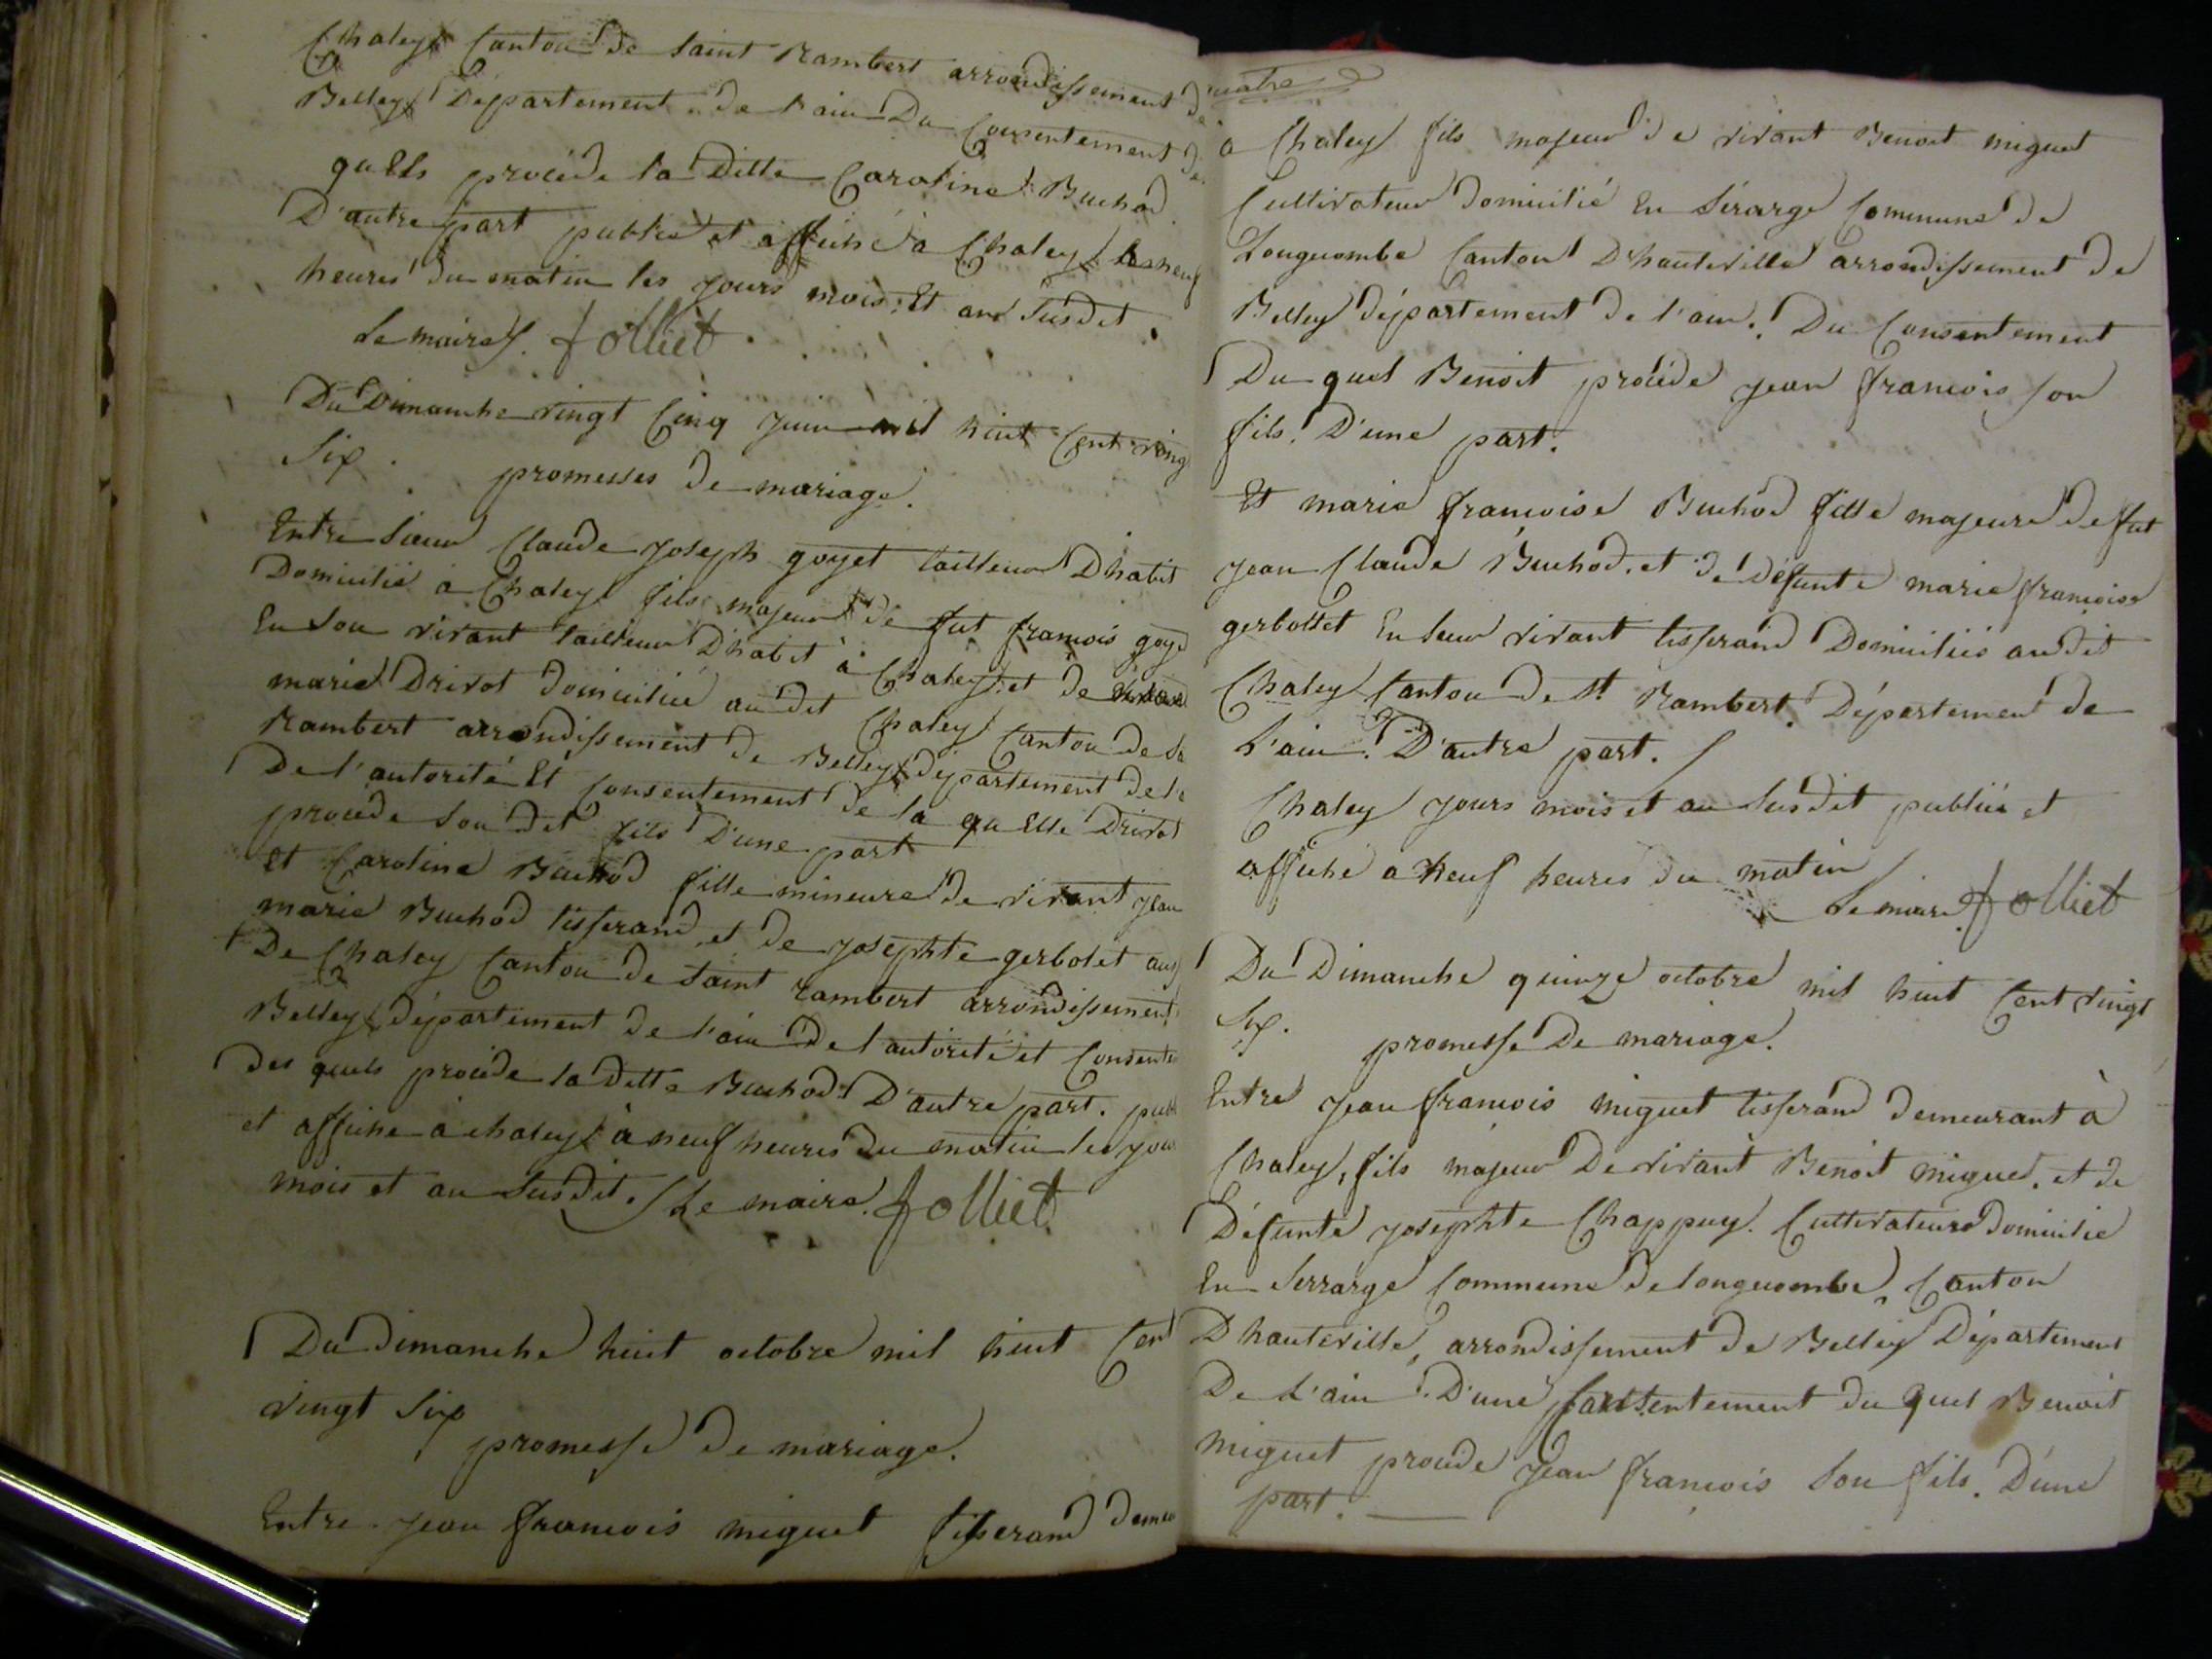 Chaley Canton de Saint Rambert arrondissement de
Belley Département de l'ain Du Consentement des
quells procéde la ditte Caroline Buchod
D'autre part publié et affiché à Chaley à neuf
heures du matin les jours mois Et an susdit.
Le maire Jolliet
Du Dimanche vingt Cinq juin mil huit Cent ving
Six.
promesses de mariage.
Entre Sieur Claude Joseph goyet tailleur Dhabit
Domicilié à Chaley fils majeur de fut francois goye
En son vivant tailleur Dhabit à Chaley et de
marie Drivot domiciliée audit Chaley Canton de Sa
Rambert arrondissement de Belley département de l'a
De l'autorité Et Consentement de la quElle Drivot
procéde Son dit fils D'une part
Et Caroline Buchod fille mineure de vivant jean
marie Buchod tisserand, et de josephte gerbotet aus
De Chaley Canton de Saint rambert arrondissement
Belley département de l'ain de l'autorité et Consente
des quels procéde la ditte Buchod D'autre part. publ
et affiche à chaley à neuf heures du matin les jour
mois et an susdit. Le maire. Jolliet
Du Dimanche huit octobre mil huit Cent
vingt Six
promesse de mariage.
Entre jean francois miguet tisserand demeu
quatre
a Chaley fils majeur de vivant Benoit miguet
Cultivateur domicilié En Sérarge Commune de
Longecombe Canton D'hauteville arrondissement de
Belley département de l'ain. Du Consentement
Du quel Benoit procéde jean francois son
fils. D'une part.
Et marie francoise Buchod fille majeure de fut
jean Claude Buchod. et de défunte marie francoise
gerbottet En leur vivant tisserand Domiciliés audit
Chaley Canton de St Rambert. Département de
L'ain. D'autre part.
Chaley jours mois et an susdit publié et
affiché a neuf heures du matin
Le maire. Jolliet
Du Dimanche quinze octobre mil huit Cent vingt
Six.
promesse De mariage.
Entre jean francois miguet tisserand demeurant à
Chaley, fils majeur De vivant Benoit miguet, et de
Défunte josephte Chappuy. Cultivateurs Domicilié
En Serrarge Commune de longecombe, Canton
D'hauteville, arrondissement de Belley Département
De L'ain. D'une Consentement du quel Benoit
miguet procéde jean francois Son fils. D'une
part.